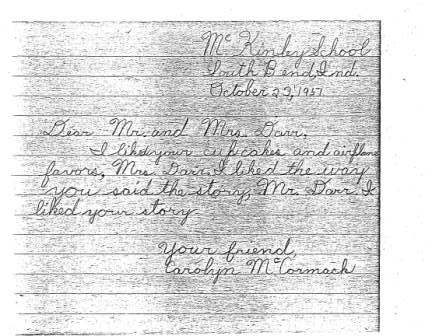 Mc Kinley School
South Bend, Ind.
October 23, 1951
Dear Mr. and Mrs. Darr,
I liked your cupcakes and airplane
favors, Mrs. Darr. I liked the way
you said the story, Mr. Darr. I
liked your story.
Your friend,
Carolyn McCormack